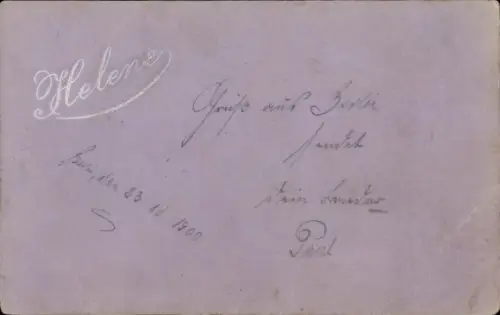 Helene
Gruß aus Berlin
sendet
dein Bruder
Paul
den 23 10 1900